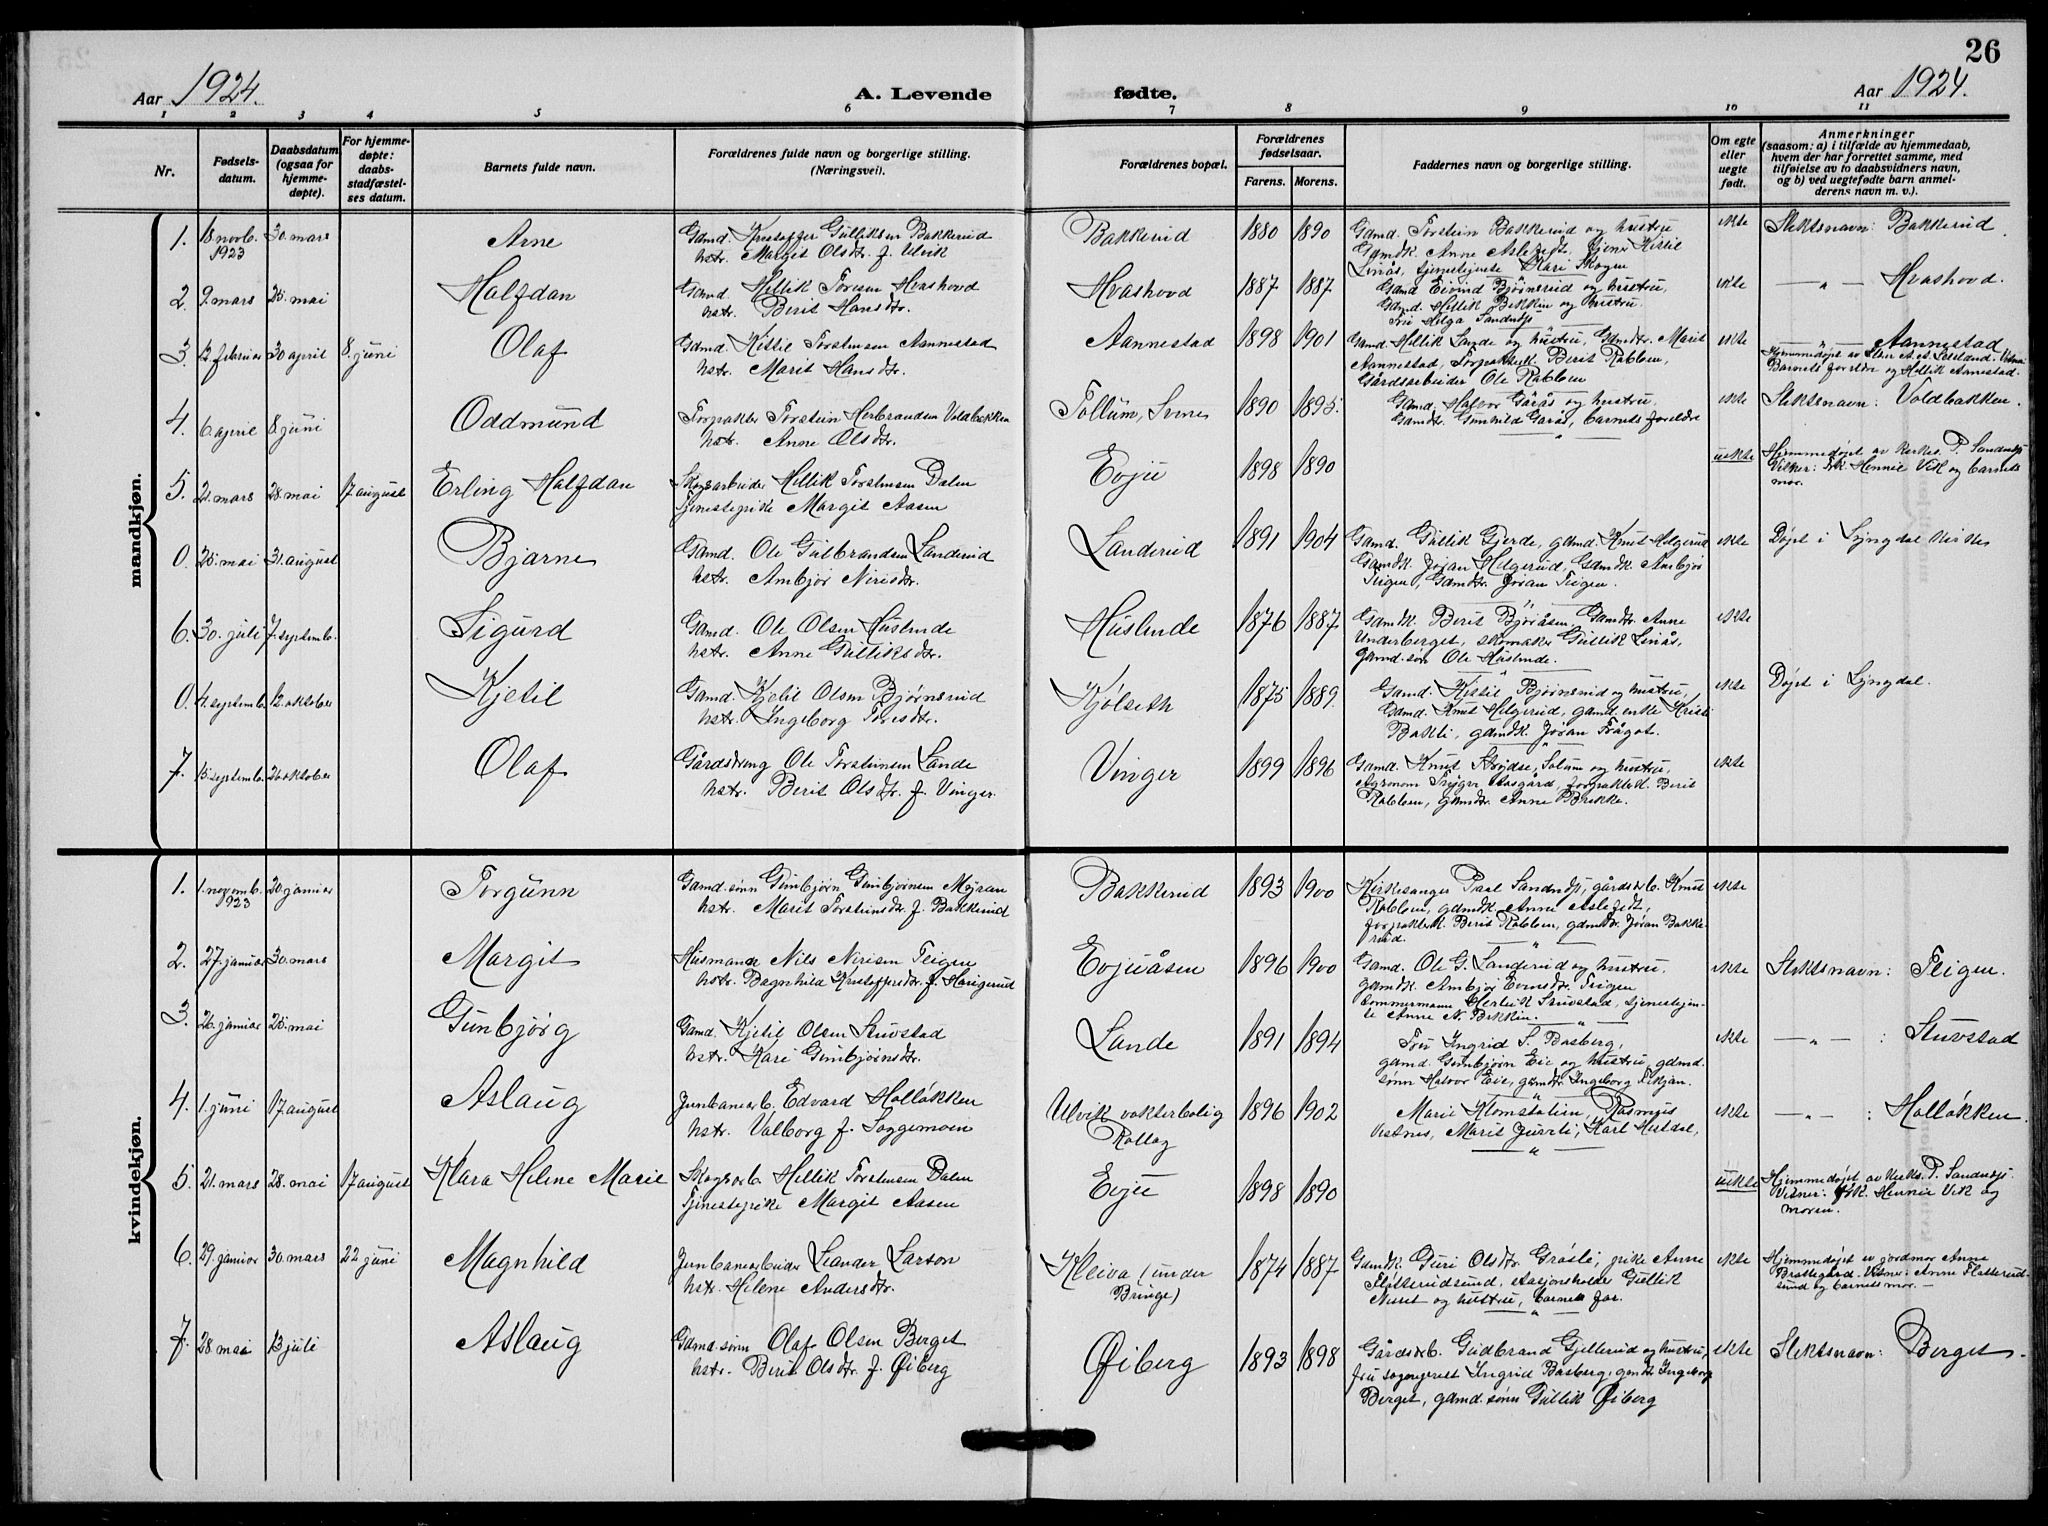 26
Aar 1924. A. Levende fødte. Aar 1924.
1 2 3 4 5 6 7 8 9 10 11
Nr.
Fødsels-
datum.
Daabsdatum
(ogsaa for
hjemme-
døpte).
For hjemme-
døpte:
daabs-
stadfæstel-
ses datum.
Barnets fulde navn.
Forældrenes fulde navn og borgerlige stilling.
(Næringsvei).
Forældrenes bopæl.
Forældrenes
fødselsaar.
Farens. Morens.
Faddernes navn og borgerlige stilling.
Om egte
eller
uegte
født.
Anmerkninger
(saasom: a) i tilfælde av hjemmedaab,
hvem der har forrettet samme, med
tilføielse av to daabsvidners navn,
og b) ved uegtefødte barn anmel-
derens navn m. v.).
mandkjøn.
1. 18 novb. 1923 30. mars
Arne
Gamd. Kristoffer Gulliksen Bakkerud
hstr. Margit Olsdtr. f. Ulvik
Bakkerud 1880 1890
Gamd. Torstein Bakkerud og hustru,
Gamdk. Anne
Linås, tjenestejente Kari Skogen
ekte Slektsnavn: Bakkerud.
2. 9. mars 25. mai
Halfdan
Gamd. Hellik Toresen Hvashovd
hstr. Berit Hansdtr.
Hvashovd 1887 1887
Gamd. Eivind Bjørnerud og hustru,
Gamd. Hellik Bekken og hustru.
Fru Helga Sandnes
ekte — " — Hvashovd.
3. 12 februar 30 april 8. juni
Olaf
Gamd. Kittil Torstensen Aannestad
hstr. Marit Hansdtr.
Aannestad 1898 1901
Gamd. Hellik Lande og hustru, Gamdtr. Marit
Aannestad, Forpakterk. Berit Rablem,
Gårdsarbeider Ole Rablem
ekte — " — Aannestad
Barnets foreldre og Hellik Aannestad.
4. 6. april 8 juni
Oddmund
Forpakter Torstein Herbrandsen Voldbakken
hstr. Anne Olsdtr.
Tollum, Svene 1890 1895.
Gamd. Halvor Gårås og hustru,
Gamdtr. Gunhild Garås, barnets foreldre
ekte Slektsnavn: Voldbakken.
5. 21. mars 28. mai 17 august
Erling Halfdan
Skogsarbeider Hellik Torstensen Dalen
Tjenestepike Margit Aasen
Evju 1898 1890
uekte Hjemmedøpt av kirkes. P. Sandnes
Vitner: frk. Hennie Vik og barnets
mor.
0. 25. mai 31. august
Bjarne
Gamd. Ole Gulbrandsen Landerud
hstr. Ambjør Nirisdtr.
Landerud 1891 1904
Gamd. Gullik Gjerde, gamd. Knut Helgerud
Gamdk. Jøran Helgerud, Gamdk. Ambjør
Teigen, Gamdtr. Jøran Teigen.
ekte Døpt i Lyngdal kirke
6. 30. juli 7. septemb.
Sigurd
Gamd. Ole Olsen Huslende
hstr. Anne Gulliksdtr.
Huslende 1876 1887
Gamdk. Berit Bjøråsen, Gamdtr. Anne
Underberget, skomaker Gullik Linås,
gamd. søn Ole Huslende.
ekte
0. 4. septemb. 12. oktober
Kjetil
Gamd. Kjetil Olsen Bjørnerud
hstr. Ingeborg Toresdtr.
Kjølseth 1875 1889.
Gamd. Kittil Bjørnerud og hustru,
Gamd. Knut Helgerud, gamd. enke Kristi
Bakli, gamdk. Jøran Trågot.
ekte Døpt i Lyngdal.
7. 15. septemb. 26 oktober
Olaf
Gårdsdreng Ole Torstensen Lande
hstr. Berit Olsdtr. f. Vinger.
Vinger 1899 1896
Gamd. Knut og hustru,
Agronom Trygve Aasgård, forpakterk. Berit
Rablem, gamdtr. Anne Brekke.
ekte
kvindekjøn.
1. 1. novemb. 1923 20. januar
Torgunn
Gamd. søn Gunbjørn Gunbjørnsen Myran
hstr. Marit Torsteinsdtr. f. Bakkerud
Bakkerud 1893 1900
Kirkesanger Paal Sandnes, gårdsarb. Knut
Rablem, gamdk. Anne
forpakterk. Berit Rablem, gamdtr. Jøran Bakke-
rud.
ekte
2. 27. januar 30. mars
Margit
Husmand Nils Nirisen Teigen
hstr. Ragnhild Kristoffersdtr. f. Haugerud
Evjuåsen 1896 1900
Gamd. Ole G. Landerud og hustru,
gamdk. Ambjør Teigen
tømmermann Herleik Stuvstad, tjenestejen-
te Anne N. Bekken.
ekte Slektsnavn: Teigen.
3. 26. januar 25. mai
Gunbjørg
Gamd. Kjetil Olsen Stuvstad
hstr. Kari Gunbjørnsdtr.
Lande 1891 1894
Fru Ingrid S. Basberg,
gamd. Gunbjørn Eie og hustru, gamd.
sønn Halvor Eie, gamdtr. Ingeborg
ekte — " — : Stuvstad
4. 1. juni 17. august
Aslaug
Jernbanearb. Edvard Holløkken
hstr. Valborg f. Loggemoen
Ulvik vokterbolig
Rollag 1896 1902
Marie Klomstatien, Rasmus
Vestnes, Marit Juveli, Karl
ekte — " — : Holløkken.
5. 21. mars 28. mai 17 august
Klara Helene Marie
Skogsarb. Hellik Torstensen Dalen
Tjenestepike Margit Aasen
Evju 1898 1890
uekte Hjemmedøpt av kirks. P. Sandnes.
Vitner: frk. Hennie Vik og
moren.
6. 29. januar 30. mars 22 juni
Magnhild
Jernbanearbeider Leander Larson
hstr. Helene Andersdtr.
Kleiva (under
Bringe) 1874 1887
Gamdk. Guri Olsdtr. Gråsli, pike Anne
Slåtterudsund, stasjonsholder Gullik
og hustru, barnets far.
ekte Hjemmedøpt av jordmor Anne
Brattegård. Vitner: Anne Flatterud-
sund og barnets mor. —
7. 28. mai 13 juli
Aslaug
Gamd. sønn Olaf Olsen Berget
hstr. Berit Olsdtr. f. Øiberg
Øiberg 1893 1898
Gårdsarb. Gudbrand Gjellerud og hustru,
fru Ingrid Basberg, gamdtr. Ingeborg
Berget, gamd. sønn Gullik Øiberg
ekte Slektsnavn: Berget.